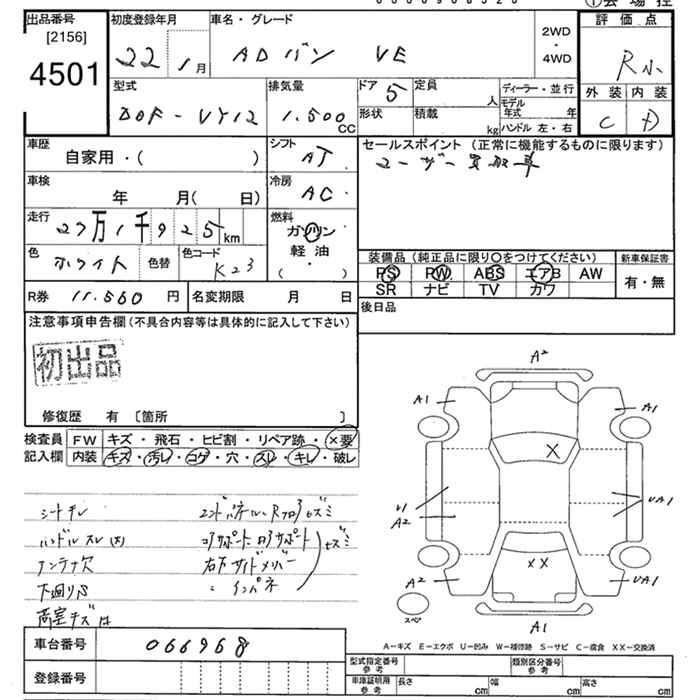 出品番号
[2156]
4501
初度登録年月
22 1月
車名・グレード
ADバン VE
2WD
・
4WD
評価点
R小
外装 内装
C D
型式
DBF-VY12
排気量
1.500 CC
ドア 5
定員
人
形状
積載
kg
ディーラー・並行
モデル
年式 年
ハンドル 左・右
車歴
自家用・( )
シフト
AT
セールスポイント (正常に機能するものに限ります)
ユーザー買取車
車検
年 月( 日)
冷房
AC
走行
27万1千925km
燃料
ガソリン
軽油
・
( )
色
ホワイト
色替
色コード
K23
装備品 (純正品に限り○をつけてください)
新車保証書
PS PW ABS エアB AW
SR ナビ TV カワ
有・無
R券 11.560 円
名変期限 月 日
後日品
注意事項申告欄(不具合内容等は具体的に記入して下さい)
初出品
修復歴 有 〔箇所 〕
検査員
記入欄
FW キズ・飛石・ヒビ割・リペア跡・×要
内装 キズ・汚レ・コゲ・穴・スレ・キレ・破レ
シートキレ
ハンドルスレ(大)
アンテナ欠
下廻りS
荷室キズ
コアサポート
右下サイドメンバー
インパネ
A2
A1
A1
X
U1
A2
UA1
XX
A2
UA1
スペア
A1
車台番号 066968
登録番号
A-キズ E-エクボ U-凹み W-補修跡 S-サビ C-腐食 XX-交換済
型式指定番号
参考
類別区分番号
参考
車庫証明用
参考
長さ cm
幅 cm
高さ cm